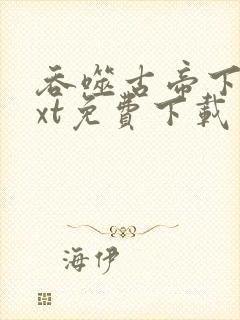 吞噬古帝下
xt免費下載
海伊